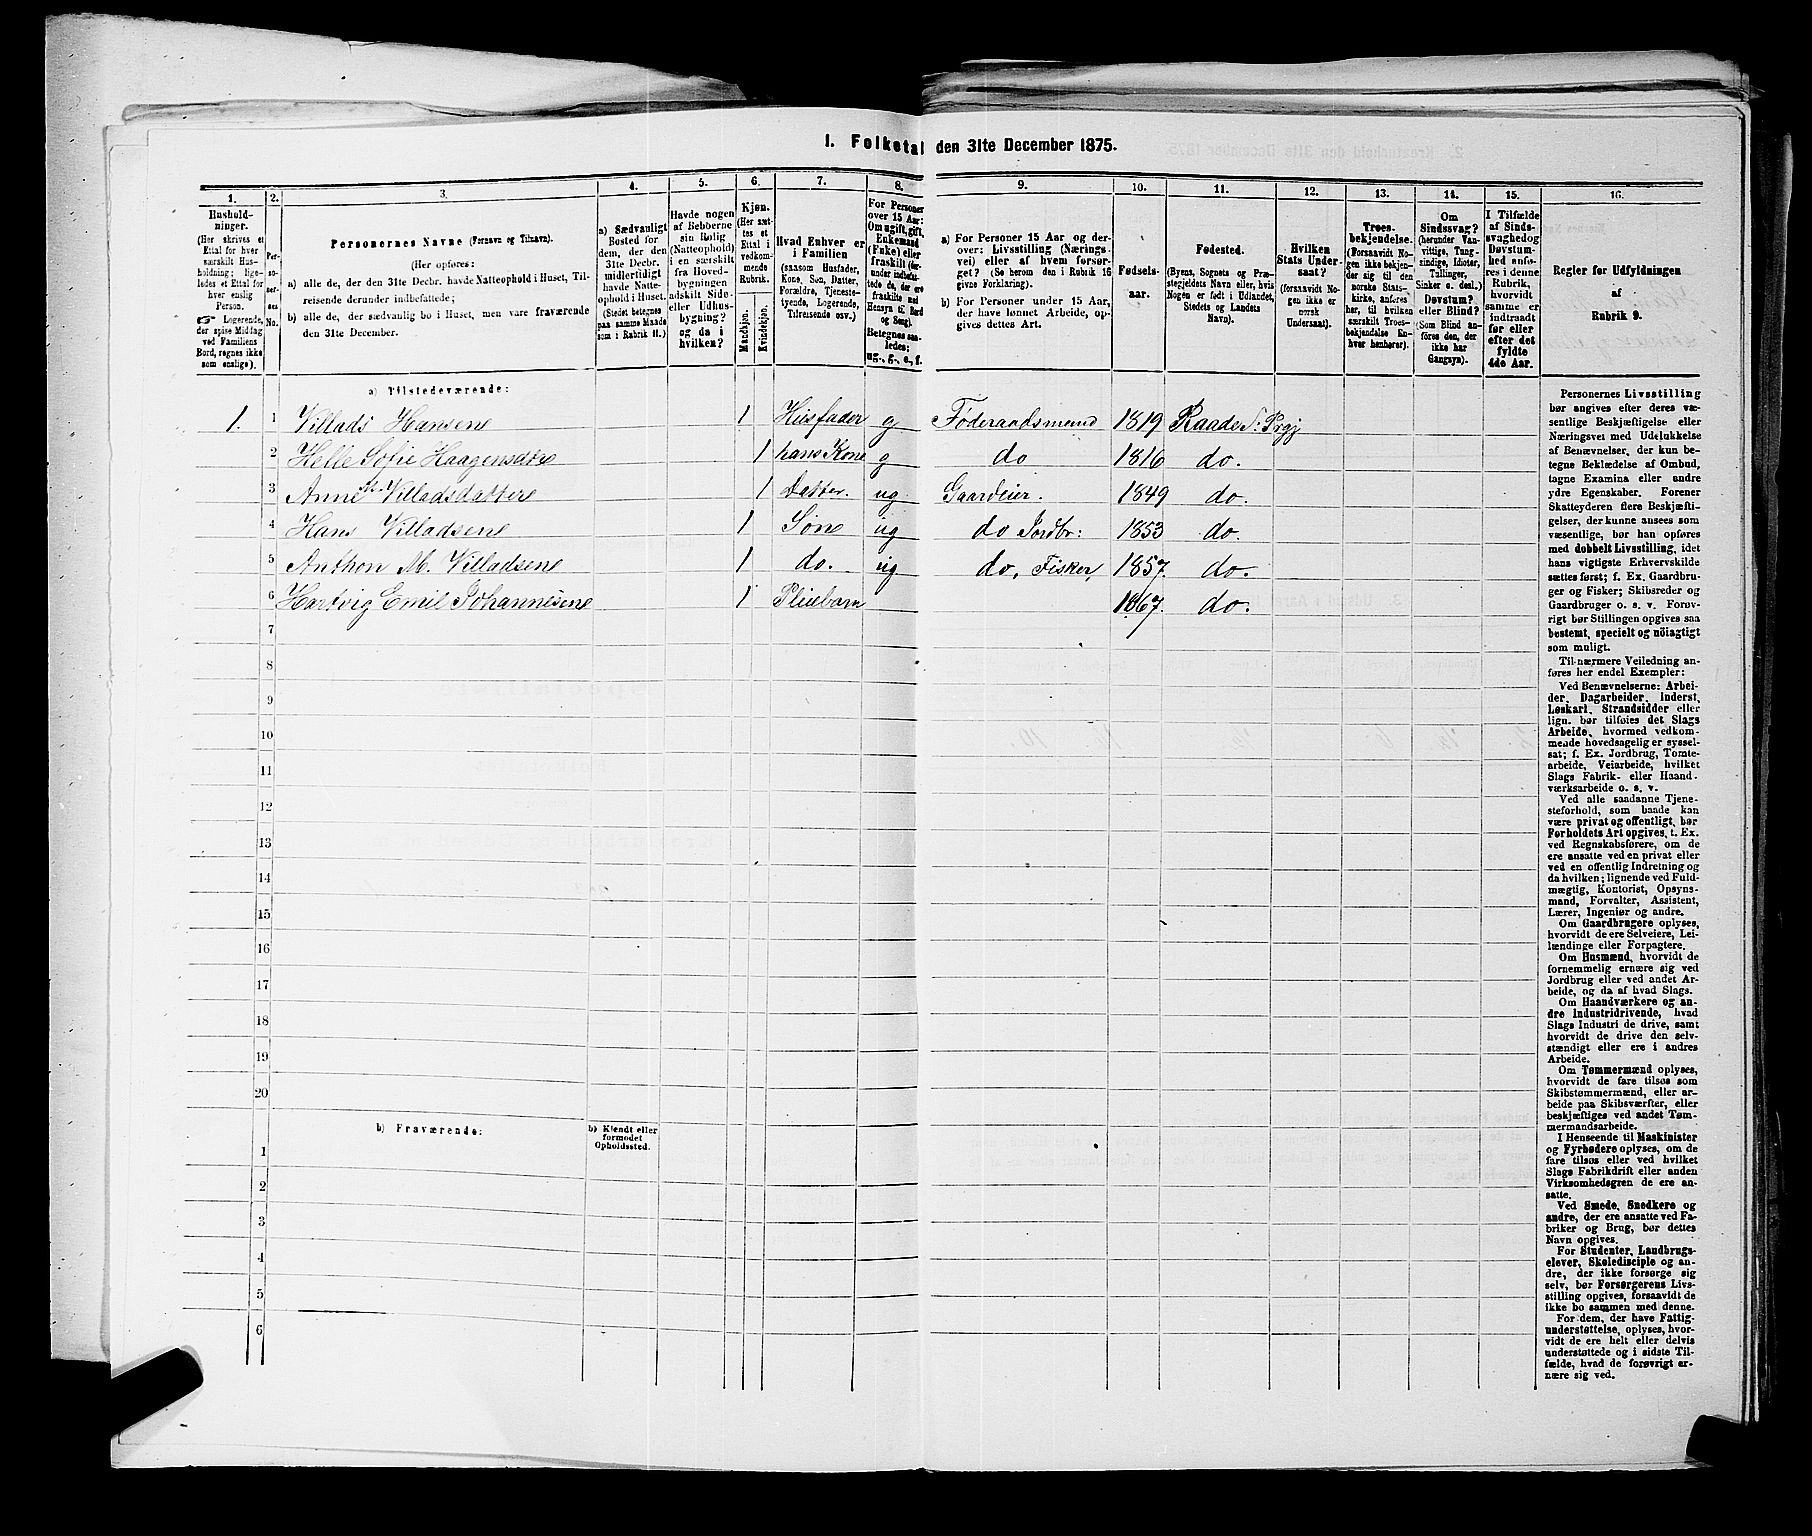 1. Folketal den 31te December 1875.
1. 2. 3. 4. 5. 6. 7. 8. 9. 10. 11. 12. 13. 14. 15. 16.
Hushold-
ninger.
(Her skrives et
Ettal for hver
særskilt Hus-
holdning; lige-
ledes et Ettal for
hver enslig
Person.
Logerende,
der spise Middag
ved Familiens
Bord, regnes ikke
som enslige).
Per-
so-
ner-
nes
No.
Personernes Navne (Fornavn og Tilnavn).
(Her opføres:
a) alle de, der den 31te Decbr. havde Natteophold i Huset, Til-
reisende derunder indbefattede;
b) alle de, der sædvanlig bo i Huset, men vare fraværende
den 31te December.
a) Sædvanligt
Bosted for
dem, der den
31te Decbr.
midlertidigt
havde Natte-
ophold i Huset.
(Stedet betegnes
paa samme Maade
som i Rubrik 11.)
Havde nogen
af Beboerne
sin Bolig
(Natteophold)
i en særskilt
fra Hoved-
bygningen
adskilt Side-
eller Udhus-
bygning?
og da i
hvilken?
Kjøn.
(Her sæt-
tes et
Ettal i
vedkom-
mende
Rubrik.
Mandkjøn.
Kvindekjøn.
Hvad Enhver er
i Familien
(saasom Husfader,
Kone, Søn, Datter,
Forældre, Tjeneste-
tyende, Logerende,
Tilreisende osv.)
For Personer
over 15 Aar:
Om ugift, gift,
Enkemand
(Enke) eller
fraskilt (der-
under indbefat-
tede de, der ere
fraskilte med
Hensyn til Bord
og Seng).
Betegnes saa-
ledes:
ug., g., e., f.
a) For Personer 15 Aar og der-
over: Livsstilling (Nærings-
vei) eller af hvem forsør-
get? (Se herom den i Rubrik 16
givne Forklaring).
b) For Personer under 15 Aar,
der have lønnet Arbeide, op-
gives dettes Art.
Fødsels-
aar.
Fødested.
(Byens, Sognets og Præ-
stegjeldets Navn eller, hvis
Nogen er født i Udlandet,
Stedets og Landets
Navn).
Hvilken
Stats Under-
saat?
(forsaavidt No-
gen ikke er
norsk
Undersaat).
Troes-
bekjendelse.
(Forsaavidt No-
gen ikke bekjen-
der sig til den
norske Stats-
kirke, anføres
her, til hvilken
særskilt Troes-
bekjendelse En-
hver henhører).
Om
Sindssvag?
(herunder Van-
vittige, Tung-
sindige, Idioter,
Tullinger,
Sinker o. desl.)
Døvstum?
eller Blind?
(Som Blind an-
føres den, der
ikke har
Gangsyn).
I Tilfælde
af Sinds-
svaghed og
Døvstum-
hed anfø-
res i denne
Rubrik,
hvorvidt
samme er
indtraadt
før eller
efter det
fyldte
4de Aar.
Regler for Udfyldningen
af
Rubrik 9.
a) Tilstedeværende:
1. 1 Villads Hansene 1 Husfader g Føderaadsmand 1819 Raade S: Prgj
2 Helle Sofie Haagensdtre 1 hans Kone g do 1816 do.
3 Anne M. Villadsdattere 1 Datter. ug Gaardeier. 1849 do.
4 Hans Villadsene 1 Søne ug do Jordbr: 1853 do.
5 Anthon M. Villadsene 1 do. ug do, Fisker, 1857. do.
6 Hartvig Emil Johannesene 1 Pleiebarn 1867. do.
7
8
9
10
11
12
13
14
15
16
17
18
19
20
b) Fraværende:
b) Kjendt eller
formodet
Opholdssted.
1
2
3
4
5
6
Personernes Livsstilling
bør angives efter deres væ-
sentlige Beskjæftigelse eller
Næringsvei med Udelukkelse
af Benævnelser, der kun be-
tegne Beklædelse af Ombud,
tagne Examina eller andre
ydre Egenskaber. Forener
Skatteyderen flere Beskjæfti-
gelser, der kunne ansees som
væsentlige, bør han opføres
med dobbelt Livsstilling, idet
hans vigtigste Erhvervskilde
sættes først; f. Ex. Gaardbru-
ger og Fisker; Skibsreder og
Gaardbruger o. s. v. Forøv-
rigt bør Stillingen opgives saa
bestemt, specielt og nöiagtigt
som muligt.
Til nærmere Veiledning an-
føres her endel Exempler:
Ved Benævnelserne: Arbei-
der, Dagarbeider, Inderst,
Løskarl, Strandsidder eller
lign. bør tilføies det Slags
Arbeide, hvormed vedkom-
mende hovedsagelig er syssel-
sat; f. Ex. Jordbrug, Tomte-
arbeide, Veiarbeide, hvilket
Slags Fabrik- eller Haand-
værksarbeide o. s. v.
Ved alle saadanne Tjene-
steforhold, som baade kan
være privat og offentligt, bør
Forholdets Art opgives, t. Ex.
ved Regnskabsførere, om de
ere ansatte ved en privat eller
ved en offentlig Indretning og
da hvilken; lignende ved Fuld-
mægtig, Kontorist, Opsyns-
mand, Forvalter, Assistent,
Lærer, Ingeniør og andre.
Om Gaardbrugere oplyses,
hvorvidt de ere Selveiere, Lei-
lændinge eller Forpagtere.
Om Husmænd, hvorvidt de
fornemmelig ernære sig ved
Jordbrug eller ved andet Ar-
beide, og da af hvad Slags.
Om Haandværkere og an-
dre Industridrivende, hvad
Slags Industri de drive, samt
hvorvidt de drive den selv-
stændigt eller ere i andres
Arbeide.
Om Tømmermænd oplyses,
hvorvidt de fare tilsøs som
Skibstømmermænd, eller ar-
beide paa Skibsværfter, eller
beskjæftiges ved andet Tøm-
mermandsarbeide.
I Henseende til Maskinister
og Fyrbødere oplyses, om de
fare tilsøs eller ved hvilket
Slags Fabrikdrift eller anden
Virksomhedsgren de ere an-
satte.
Ved Smede, Snedkere og
andre, der ere ansatte ved Fa-
briker og Brug, bør dettes
Navn opgives.
For Studenter, Landbrugs-
elever, Skoledisciple og an-
dre, der ikke forsørge sig
selv, bør Forsørgerens Livs-
stilling opgives, forsaavidt de
ikke bo sammen med denne.
For dem, der have Fattig-
understøttelse, oplyses, hvor-
vidt de ere helt eller delvis
understøttede og i sidste Til-
fælde, hvad de forøvrigt er-
nære sig ved.